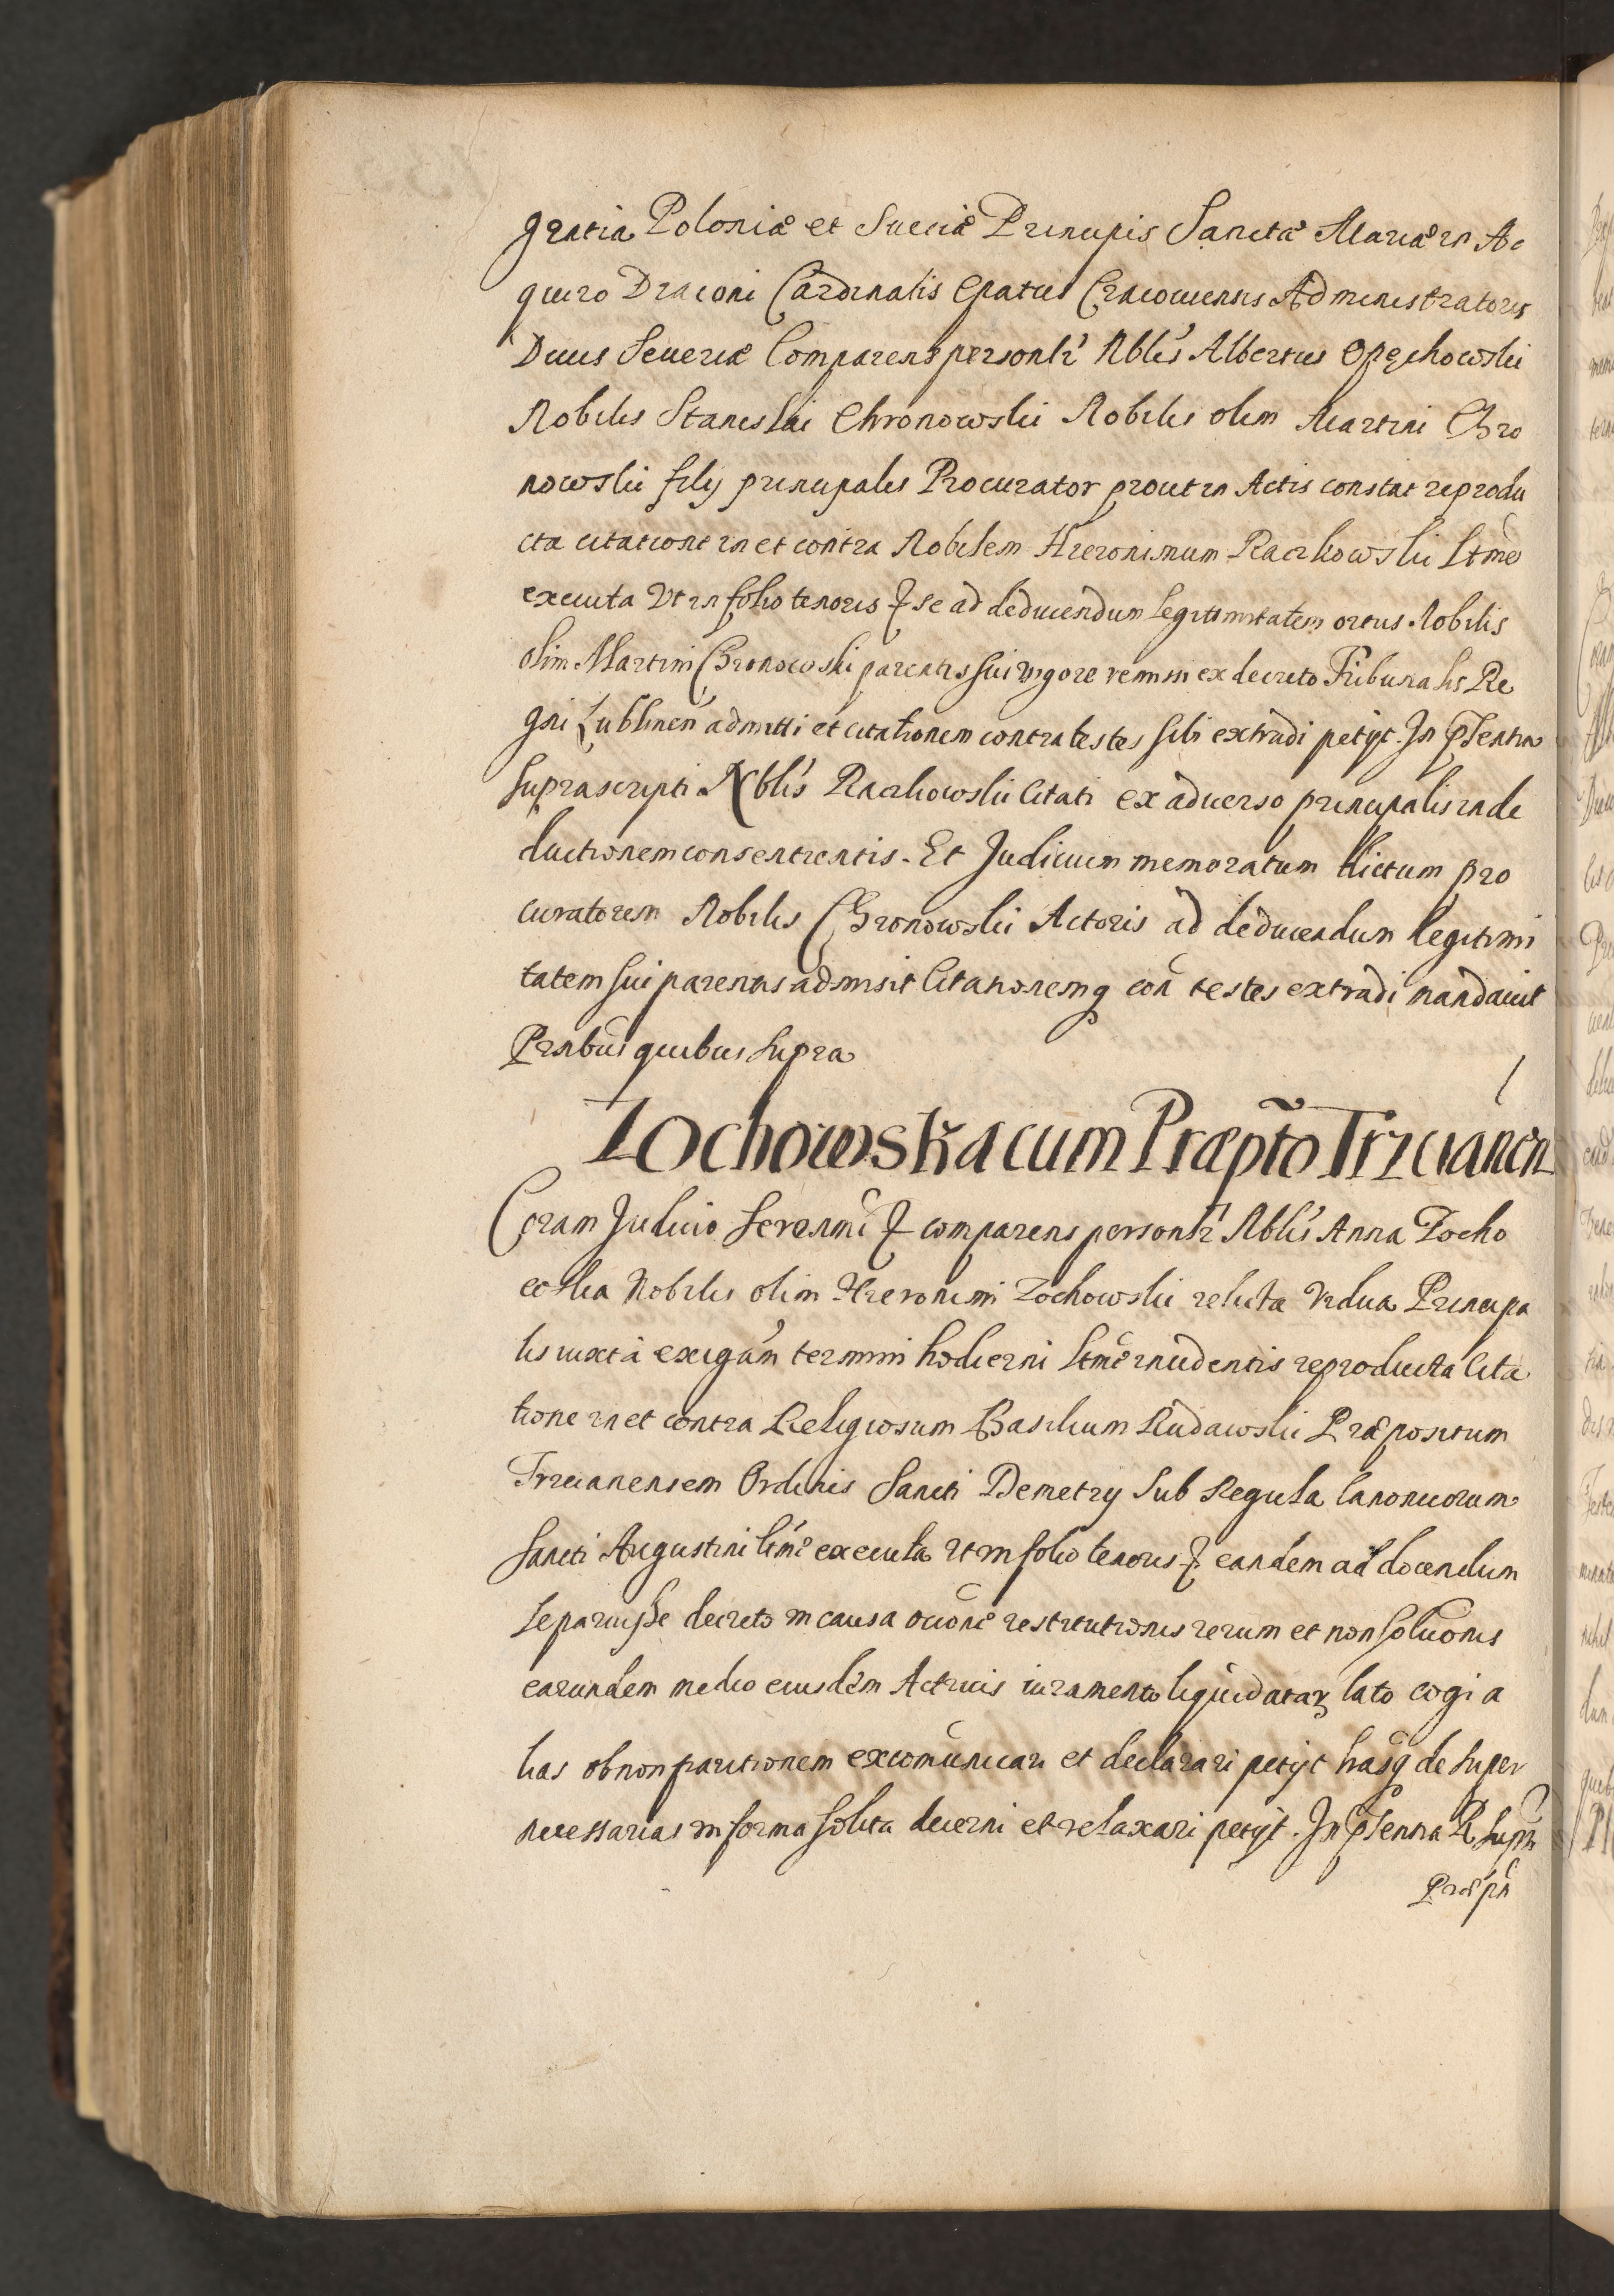 gratia Poloniæ et Sueciæ Principis Sanctæ Mariæ in Ae
quiro Draconi Cardinalis Epatus Cracouiensis Administratoris
Ducis Seueriæ Comparens personlr Nblis Albertus Opechowski
Nobilis Stanislai Chronowski Nobilis olim Martini Chro
nowski filij principalis Procurator prout in Actis constat reprodu
cta citatione in et contra Nobilem Hieronimum Raczkowski ltme
executa Vt in folio tenoris & se ad deducendum legitimitatem ortus Nobilis
olim Martini Chronowski parentis sui vigore remissi ex decreto Tribunalis Re
gni Lublinen admitti et citationem contra testes sibi extradi petijt. In Psentia
suprascripti Nblis Raczkowski Citati ex aduerso principalis in de
ductionem consentientis. Et Judicium memoratum dictum pro
curatorem Nobilis Chronowski Actoris ad deducendum legitimi
tatem sui parentis admisit Citationemq con testes extradi mandauit
Pnbus quibus supra
Zochowska cum Præpto Trzcianen
Coram Judicio Serenmi & comparens personlr Nblis Anna Zocho
wska Nobilis olim Hieronimi Zochowski relicta Vidua Principa
lis iuxta exigam termini hodierni ltme incidentis reproducta Cita
tione in et contra Religiosum Basilium Rudawski Præpositum
Trzcianensem Ordinis Sancti Demetrij sub Regula Canonicorum
Sancti Augustini ltme executa Vt in folio tenoris & eandem ad docendum
se paruisse decreto in causa ocione restitutionis rerum et non soluonis
earundem medio eiusdem Actricis iuramento liquidatar lato cogi a
lias ob non paritionem excomunicari et declarari petijt hasq de super
necessarias in forma solita decerni et relaxari petijt. In Psentia R supra
Præpti